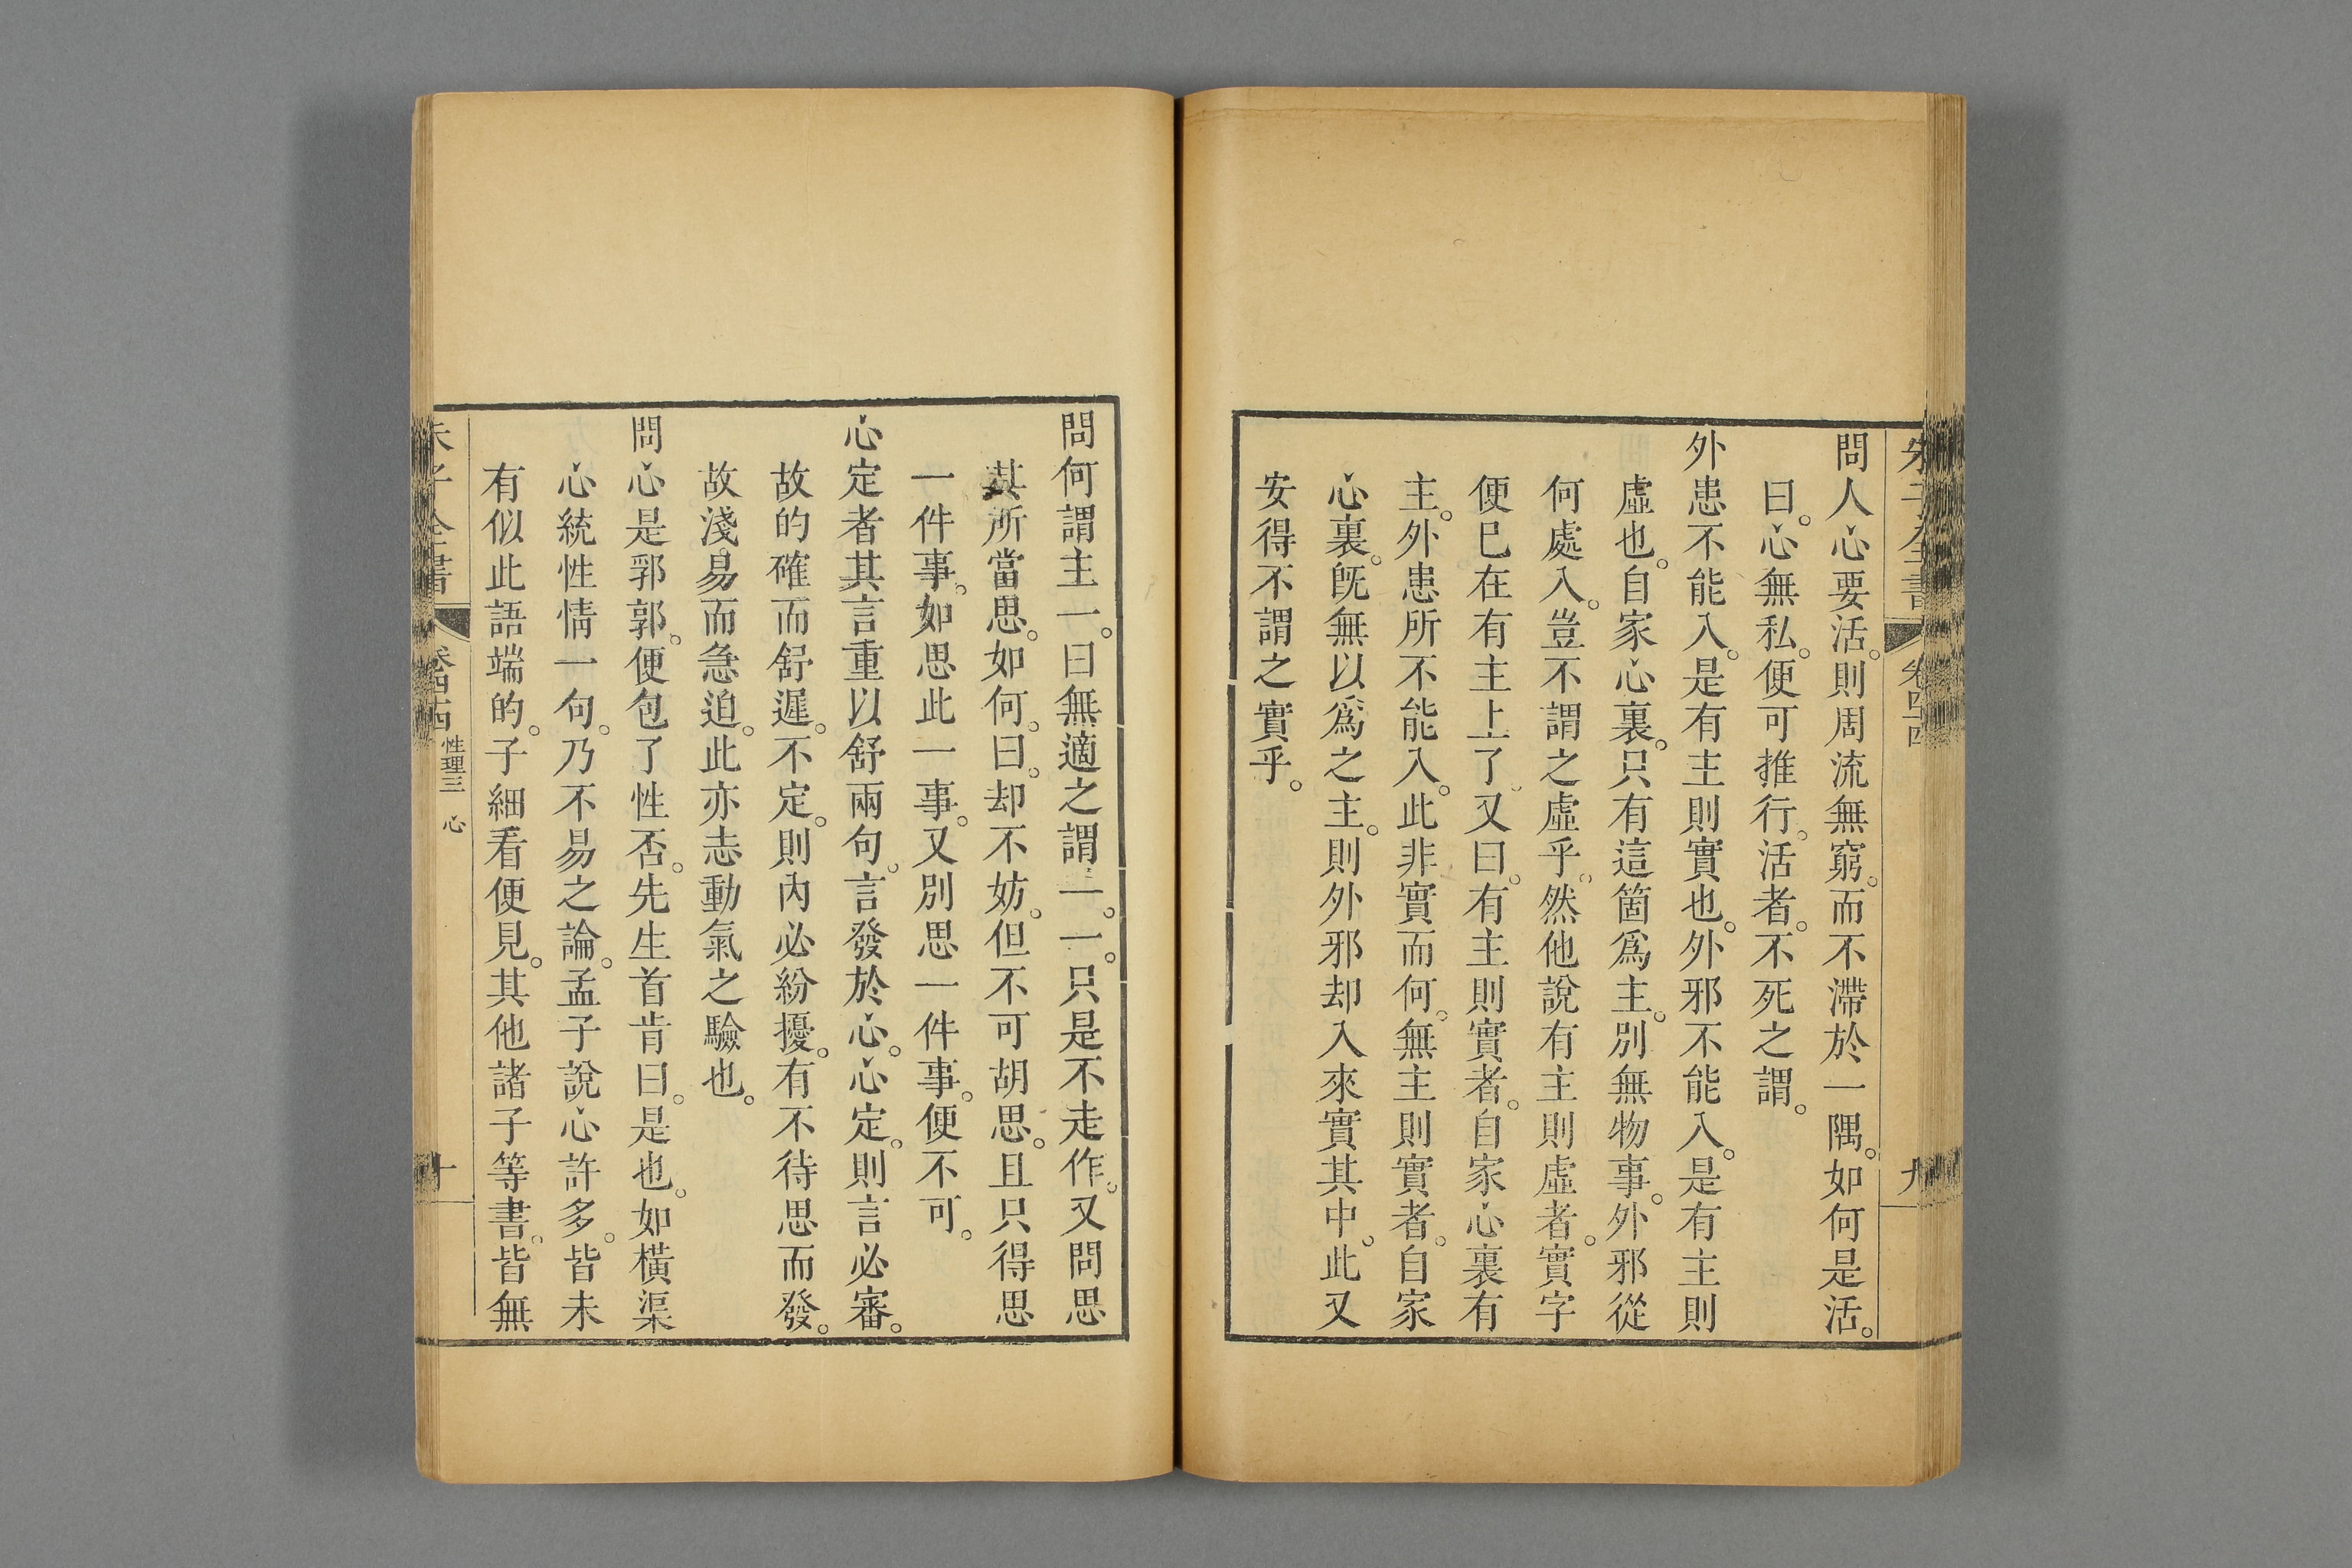 問人心要活。則周流無窮。而不滯於一隅。如何是活。
曰。心無私。便可推行。活者。不死之謂。
外患不能入。是有主則實也。外邪不能入。是有主則
虛也。自家心裏。只有這箇爲主。別無物事。外邪從
何處入。豈不謂之虛乎。然他說有主則虛者。實字
便已在有主上了。又曰。有主則實者。自家心裏有
主。外患所不能入。此非實而何。無主則實者。自家
心裏。旣無以爲之主。則外邪却入來實其中。此又
安得不謂之實乎。
問何謂主一。曰無適之謂一。一。只是不走作。又問思
其所當思。如何。曰。却不妨。但不可胡思。且只得思
一件事。如思此一事。又別思一件事。便不可。
心定者其言重以舒兩句。言發於心。心定。則言必審。
故的確而舒遲。不定。則內必紛擾。有不待思而發。
故淺易而急迫。此亦志動氣之驗也。
問心是郛郭。便包了性否。先生首肯曰。是也。如橫渠
心統性情一句。乃不易之論。孟子說心許多。皆未
有似此語端的。子細看便見。其他諸子等書。皆無
朱子全書
性理三 心
十